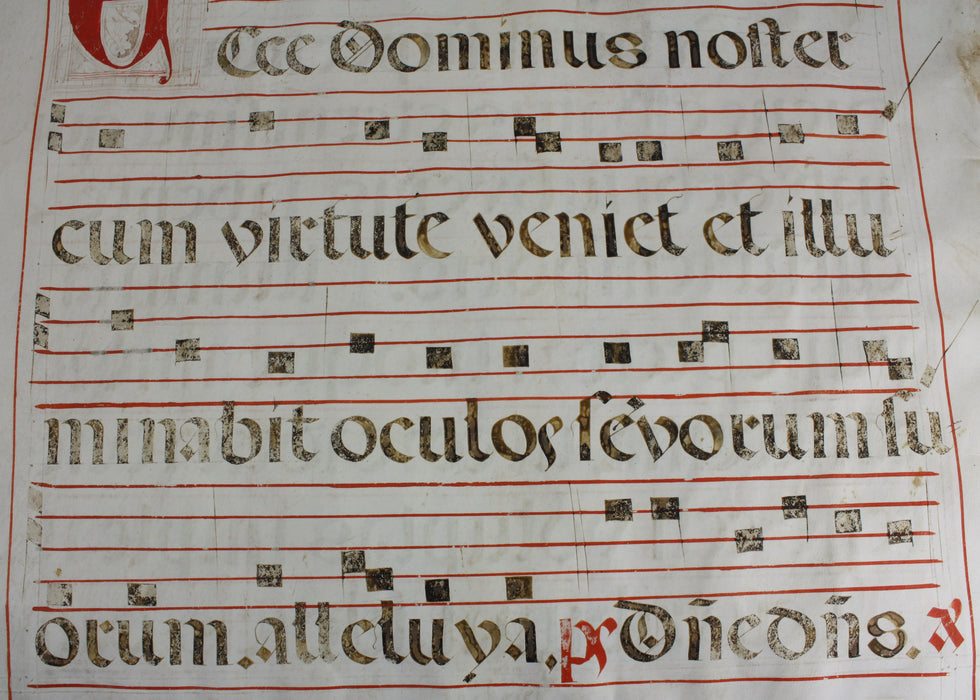 Ecce Dominus noſter
cum virtute veniet et illu
minabit oculos ſervorum ſu
orum. alleluya. ps Dñe dñs.